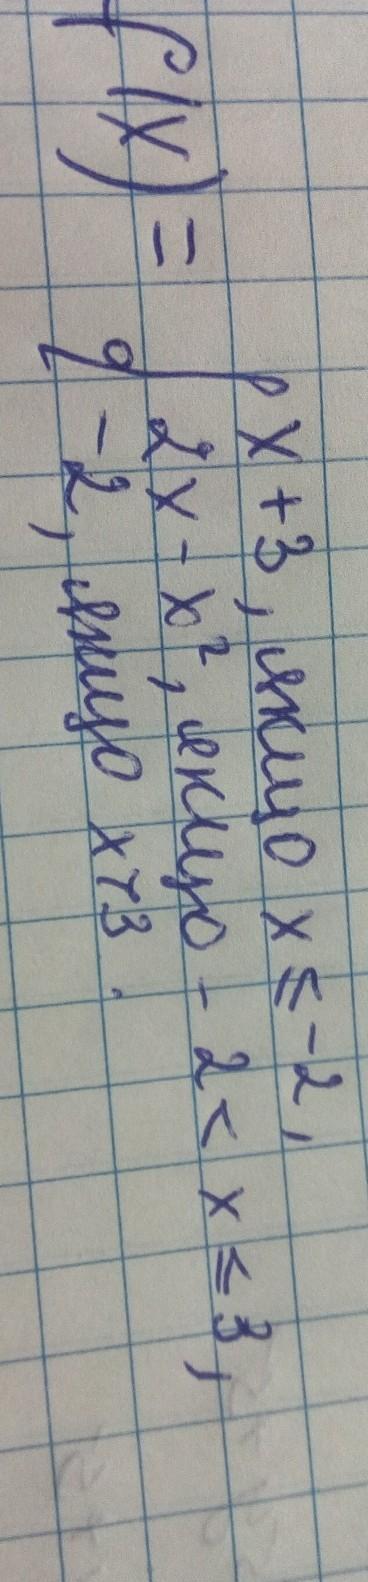 f(x) = { x + 3, якщо x ≤ -2,
2x - x², якщо - 2 < x ≤ 3,
-2, якщо x > 3.